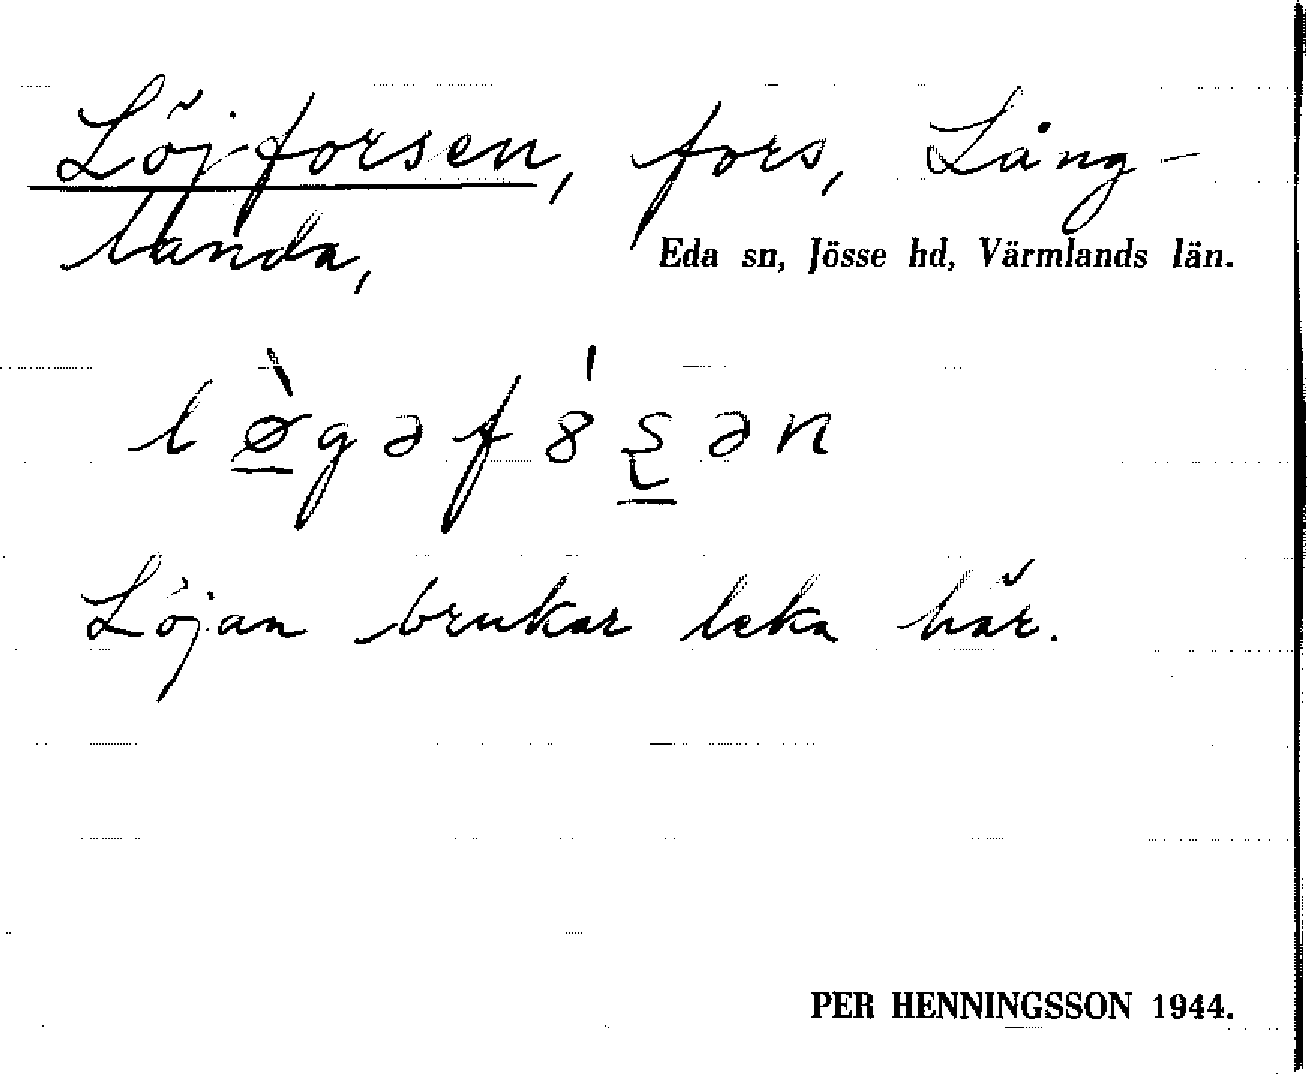 Löjforsen, fors, Lång-
landa,
Eda sn, Jösse hd, Värmlands län.
lø̲̀gəf8́ʂ̲ən
Löjan brukar leka här.
PER HENNINGSSON 1944.